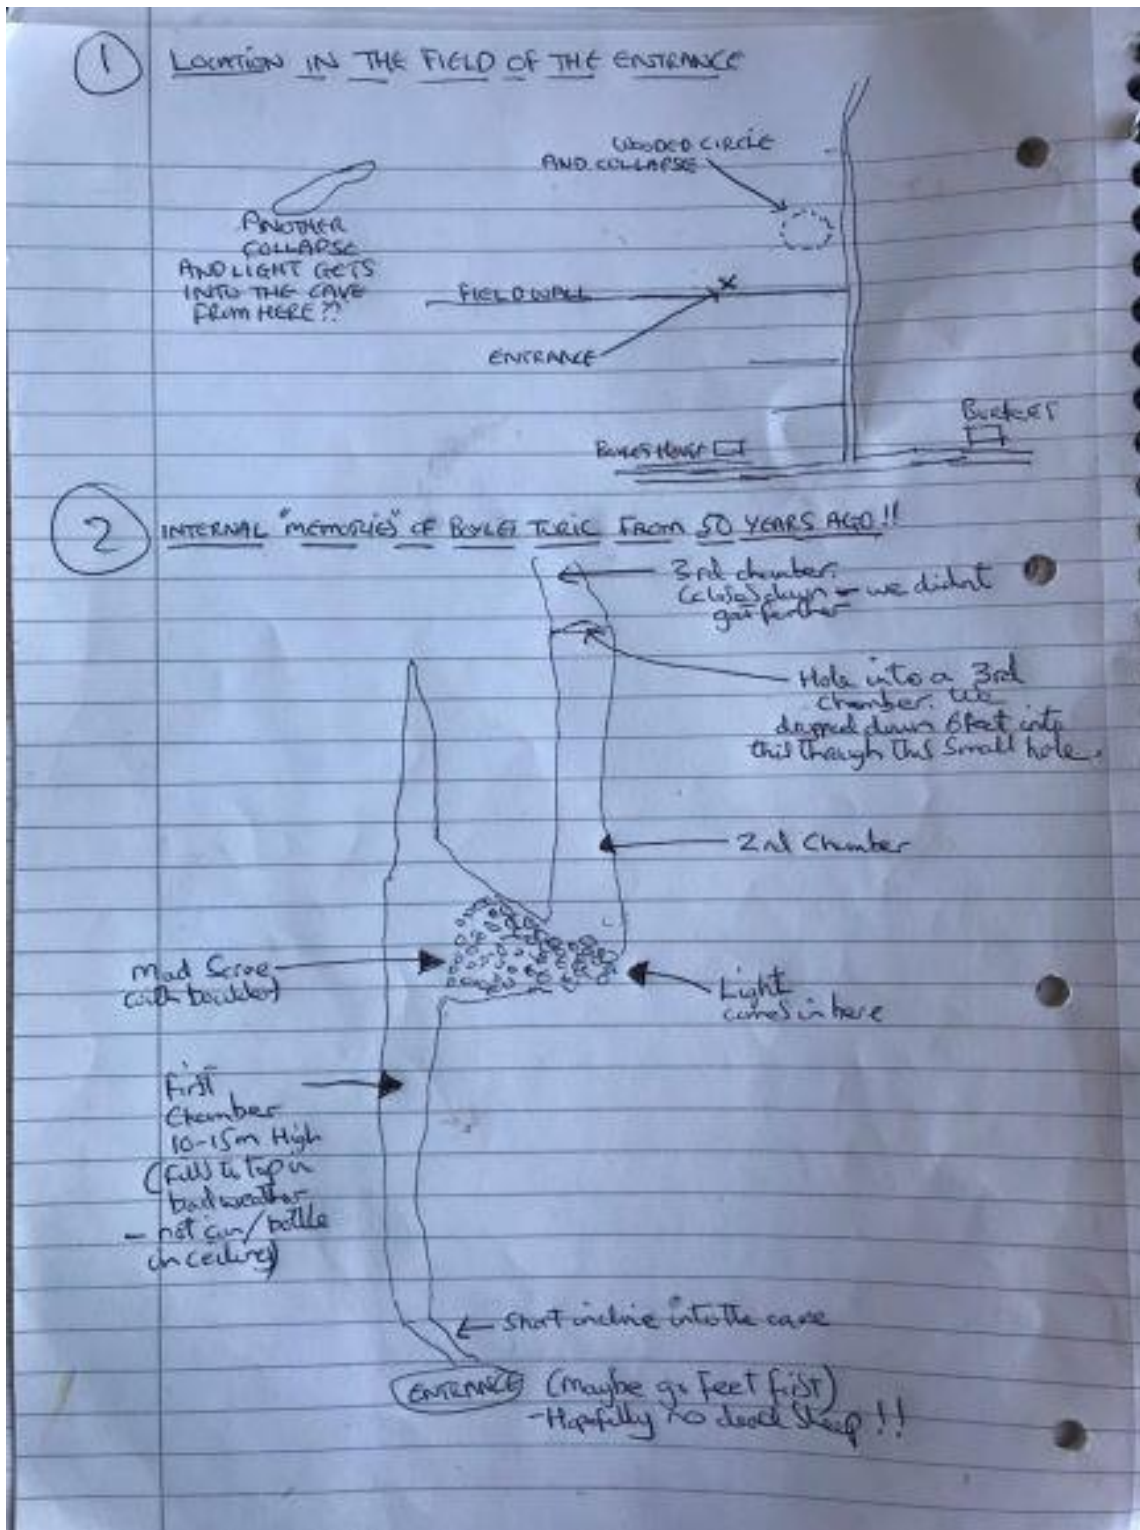 1 LOCATION IN THE FIELD OF THE ENTRANCE
WOODED CIRCLE
AND COLLAPSE
ANOTHER
COLLAPSE
AND LIGHT GETS
INTO THE CAVE
FROM HERE??
FIELD WALL
ENTRANCE
2 INTERNAL "MEMORIES" OF TURIC FROM 50 YEARS AGO!!
3rd chamber.
down - we didnt
get further
Hole into a 3rd
chamber. We
dropped down 6 feet into
this through this small hole.
2nd Chamber
Mad Scree
(with boulders)
Light
comes in here
First
Chamber
10-15m High
(fills to top in
bad weather
- not can/bottle
on ceiling)
Short incline into the cave
ENTRANCE (Maybe go feet first)
- Hopefully no dead sheep!!